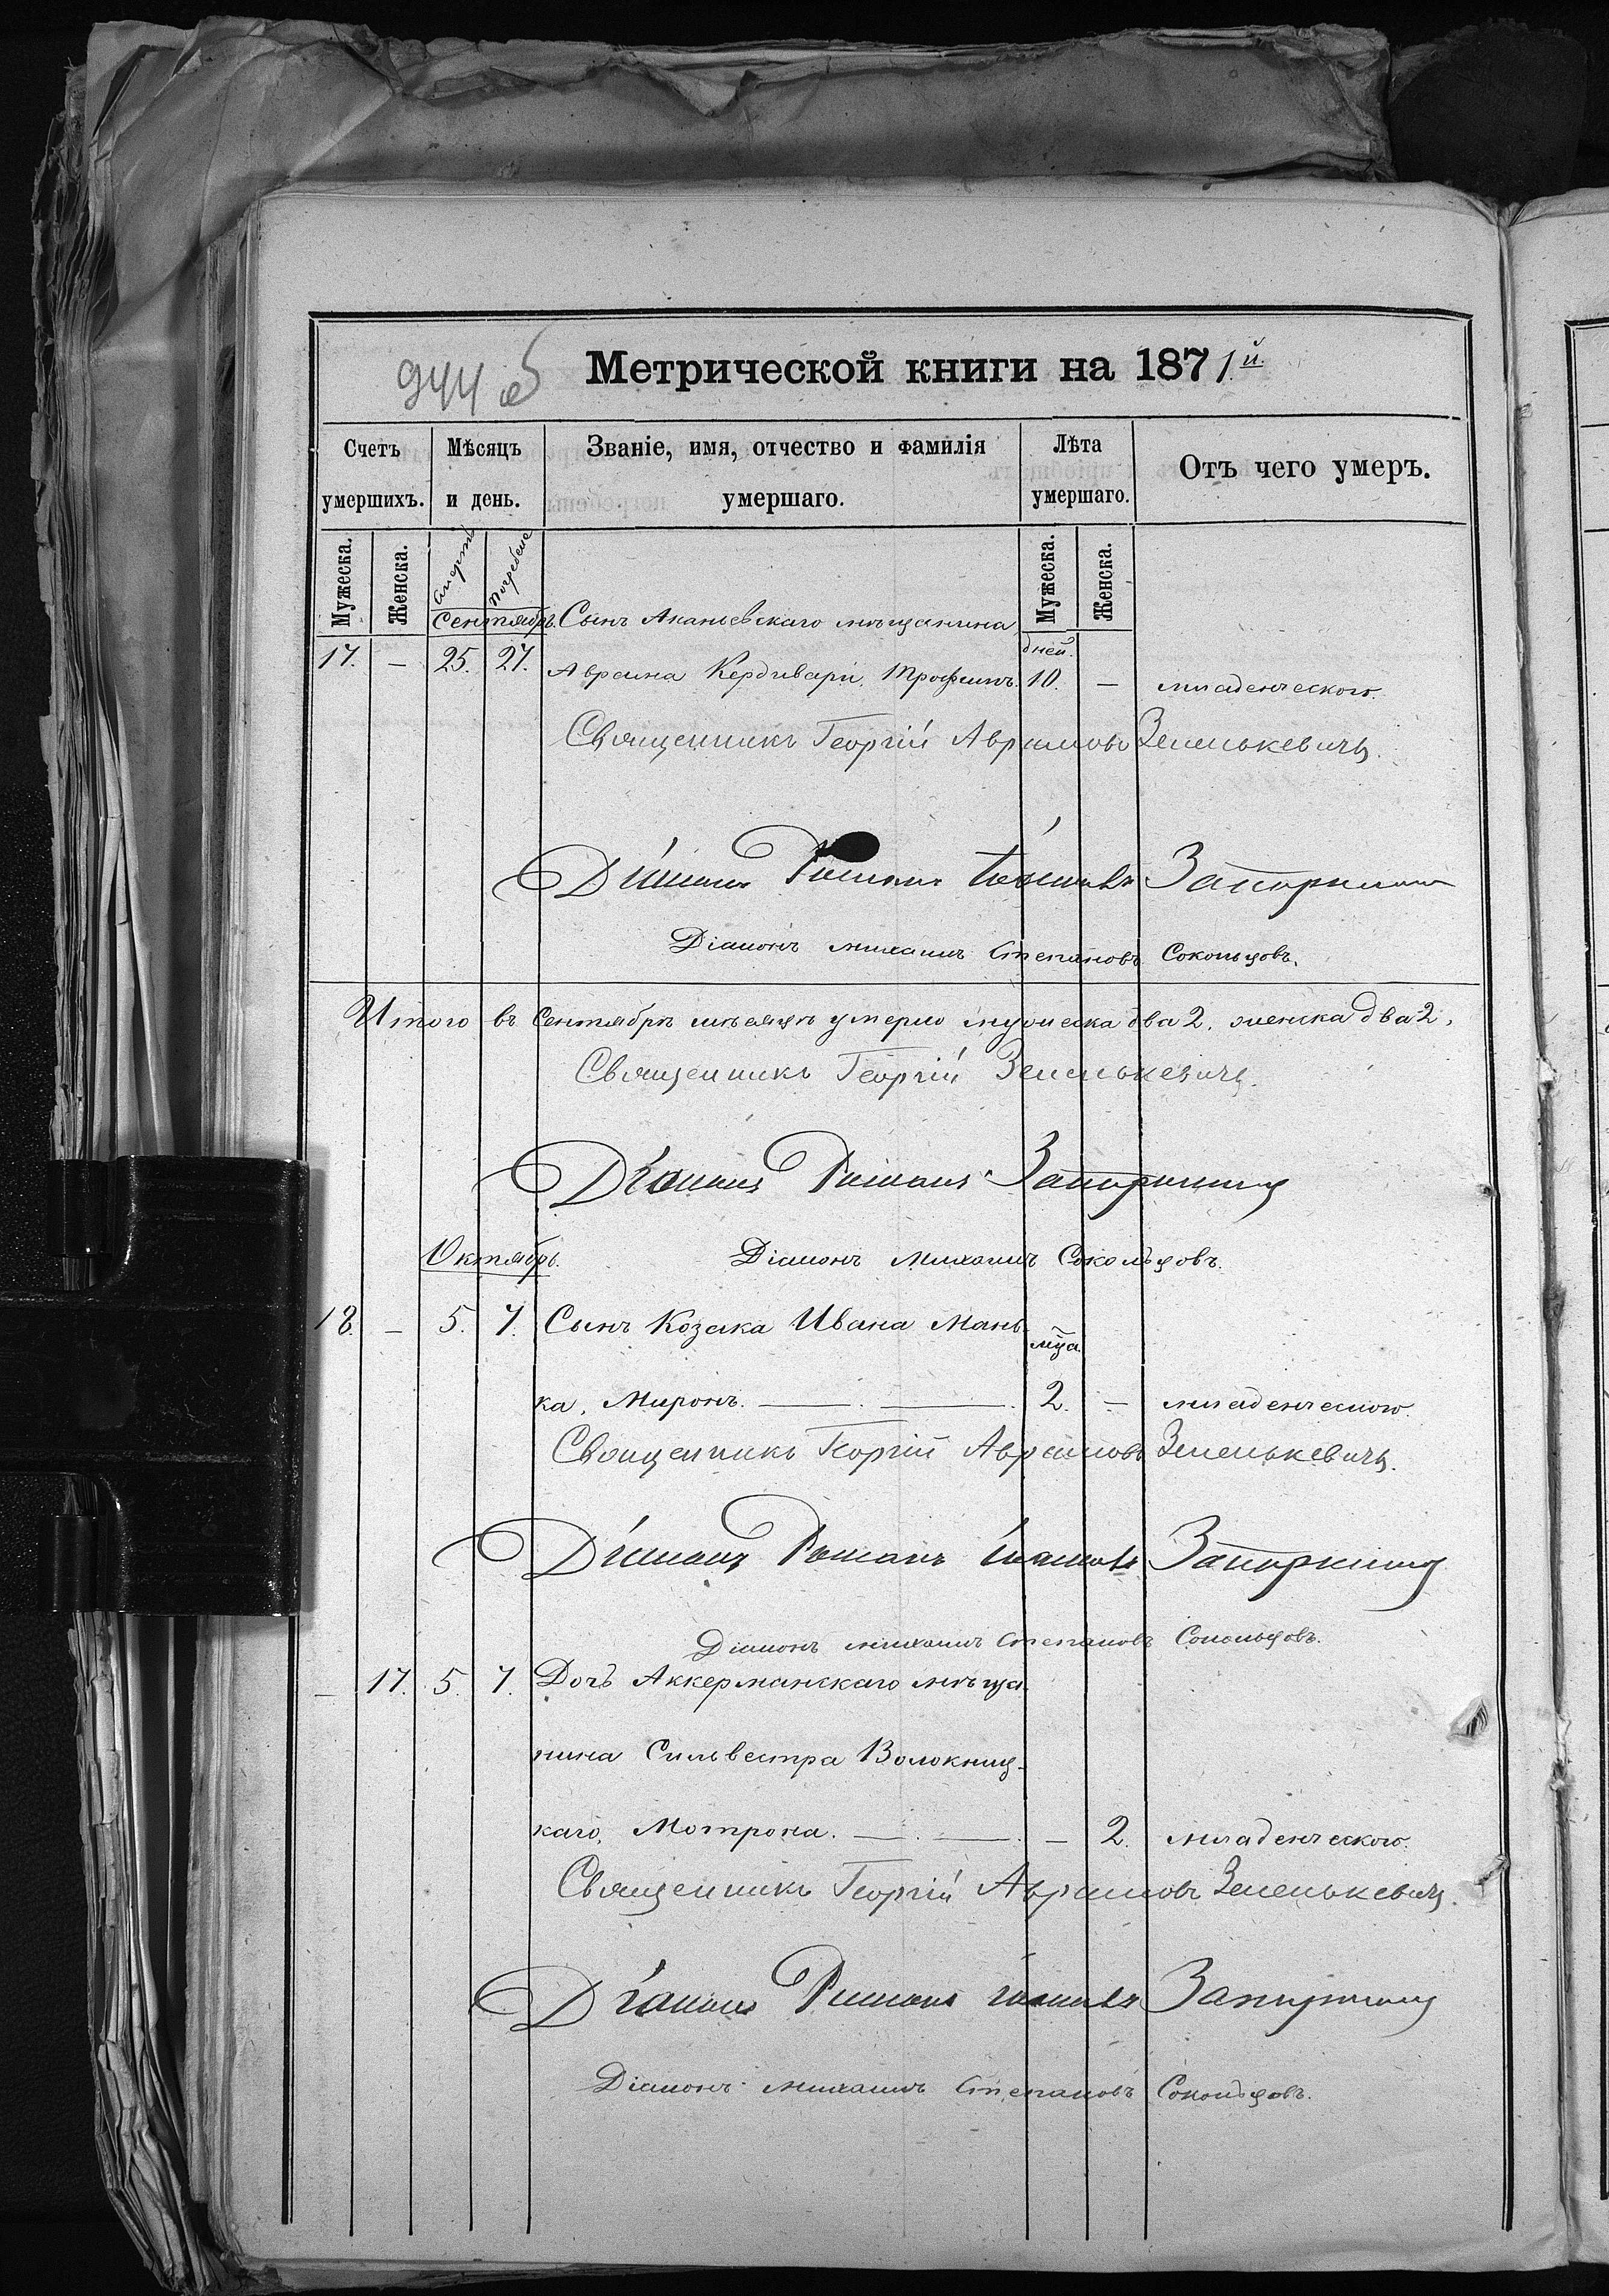 944 об
Метрической книги на 1871й.
Счетъ умершихъ.
Мѣсяцъ и день.
Званіе, имя, отчество и фамилія умершаго.
Лѣта умершаго.
Отъ чего умеръ.
Мужеска. Женска. Смерть Погребен Мужеска. Женска.
Сентябрь. Сынъ Ананьевскаго мѣщанина дней.
17. — 25. 27. Аврама Кердивари, Трофимъ. 10. — младенческого.
Священникъ Георгій Аврамовъ Зеленькевичъ.
Діаконъ Романъ Запоркинъ
Діаконъ Михаилъ Степановъ Сокольцовъ.
Итого въ Сентябрѣ мѣсяцѣ умерло мужеска два 2. женска два 2.
Священникъ Георгій Зеленькевичъ.
Діаконъ Романъ Запоркинъ
Октябрь. Діаконъ Михаилъ Сокольцовъ.
18. — 5. 7. Сынъ Козака Ивана Мань- мца
ка, Миронъ. — . — . 2. — младенческого.
Священникъ Георгій Аврамовъ Зеленькевичъ.
Діаконъ Романъ Запоркинъ
Діаконъ Михаилъ Степановъ Сокольцовъ.
— 17. 5. 7. Дочь Аккерманскаго мѣща-
нина Сильвестра Волокниц-
каго, Мотрона. — . — . — 2. младенческого.
Священникъ Георгій Аврамовъ Зеленькевичъ.
Діаконъ Романъ Запоркинъ
Діаконъ Михаилъ Степановъ Сокольцовъ.